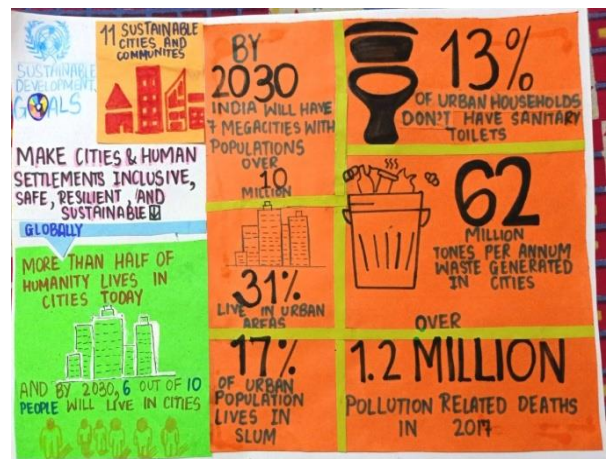 SUSTAINABLE
DEVELOPMENT
GOALS
11 SUSTAINABLE
CITIES AND
COMMUNITES
MAKE CITIES & HUMAN
SETTLEMENTS INCLUSIVE,
SAFE, RESILIENT, AND
SUSTAINABLE
GLOBALLY
MORE THAN HALF OF
HUMANITY LIVES IN
CITIES TODAY
AND BY 2030, 6 OUT OF 10
PEOPLE WILL LIVE IN CITIES
BY
2030
INDIA WILL HAVE
7 MEGACITIES WITH
POPULATIONS
OVER
10
MILLION
31%
LIVE IN URBAN
AREAS
17%
OF URBAN
POPULATION
LIVES IN
SLUM
13%
OF URBAN HOUSEHOLDS
DON'T HAVE SANITARY
TOILETS
62
MILLION
TONES PER ANNUM
WASTE GENERATED
IN CITIES
OVER
1.2 MILLION
POLLUTION RELATED DEATHS
IN 2017